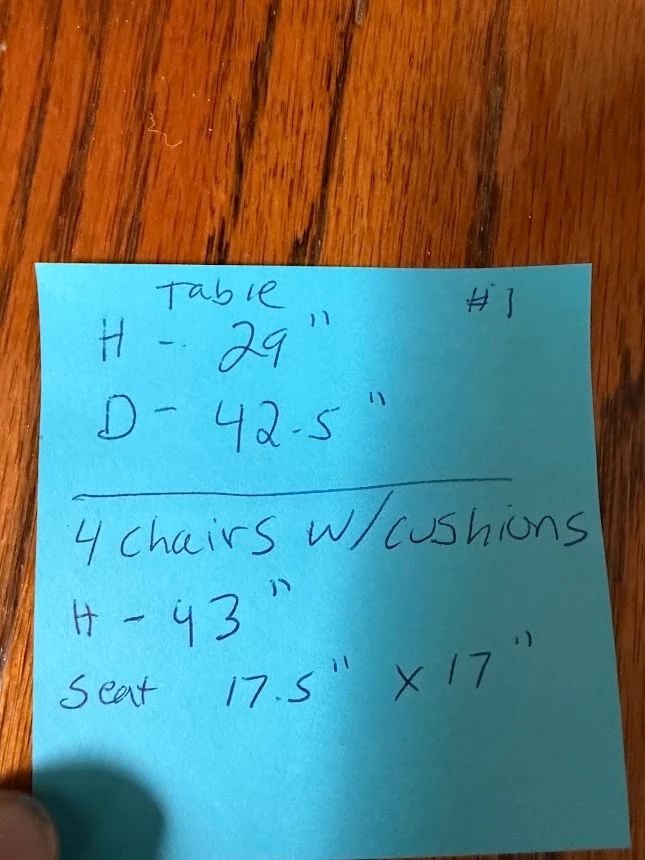 Table #1
H - 29"
D - 42.5"
4 chairs w/cushions
H - 43"
Seat 17.5" x 17"